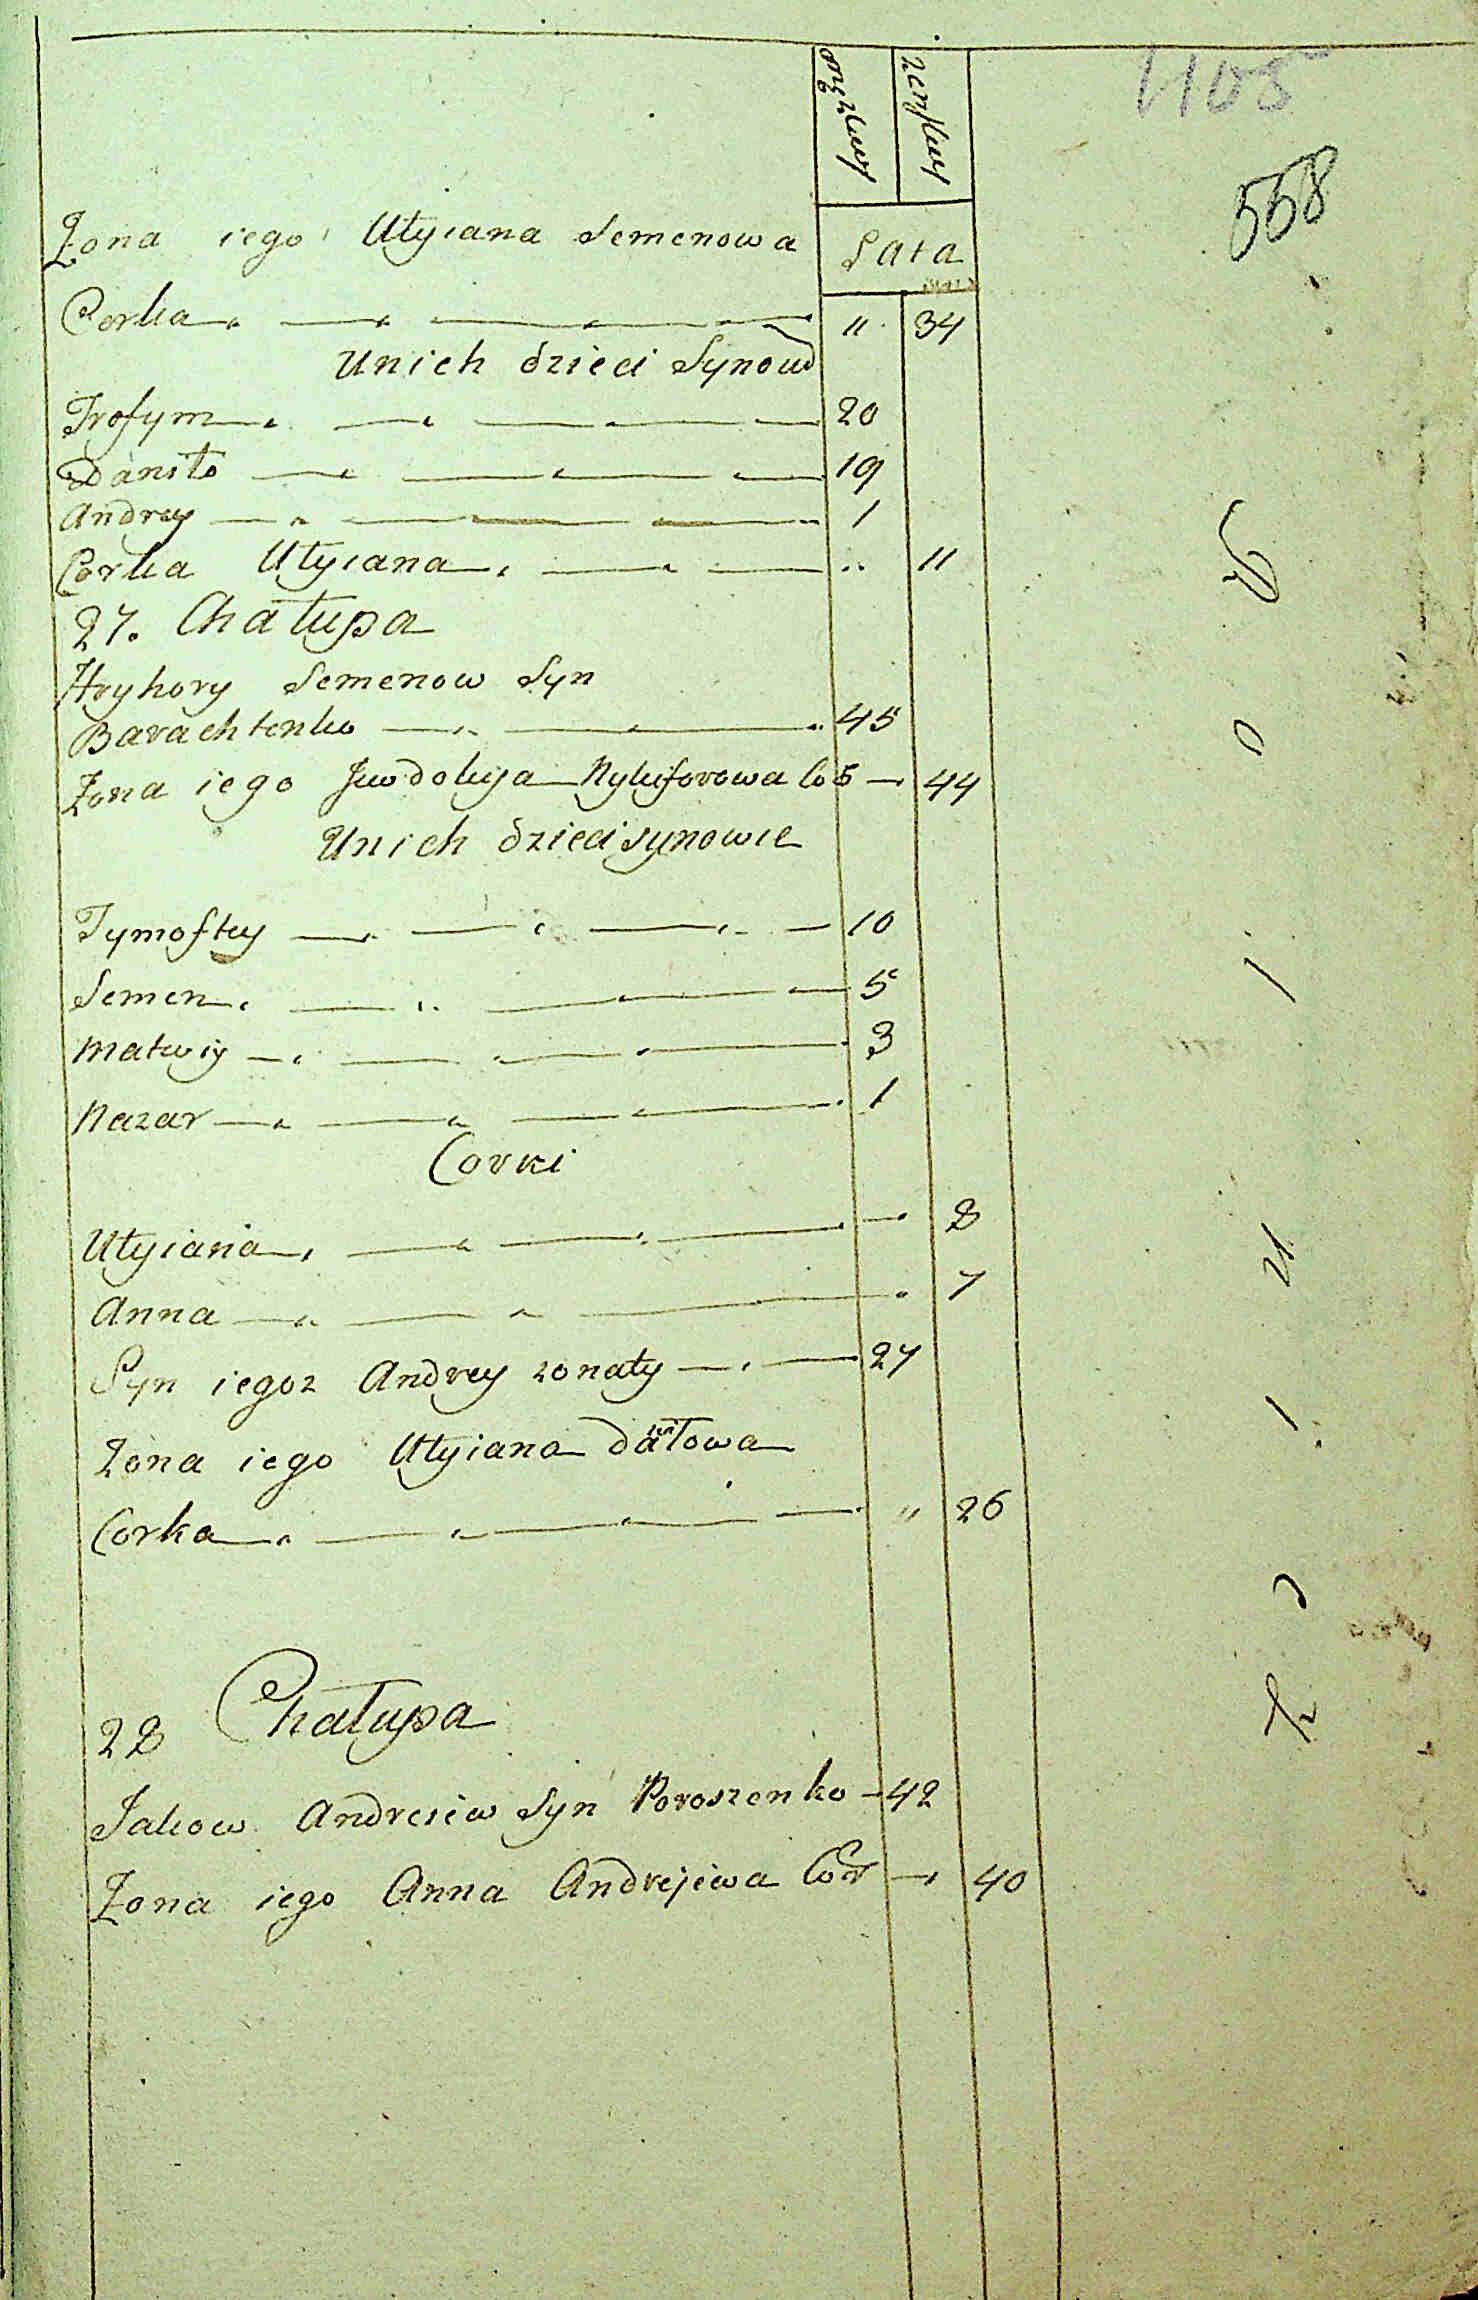 męzkiey zenskiey
1105
558
Żona iego Utyiana Semenowa Lata
Corka " 34
U nich dzieci Synow
Trofym 20
Daniło 19
Andrey 1
Corka Utyiana .. 11
27. Chałupa
Hryhory Semenow Syn
Barachtenko 45
Żona iego Juwdokija Nykyforowa Co 5 44
U nich dzieci synowie
Tymoftey 10
Semen 5
Matwiy 3
Nazar 1
Corki
Utyiana 8
Anna 7
Syn iegoz Andrey zonaty 27
Zona iego Utyiana
Corka " 26
28 Chałupa
Jakow Andreiew Syn Poroszenko 42
Żona iego Anna Andrejewa Cor 40